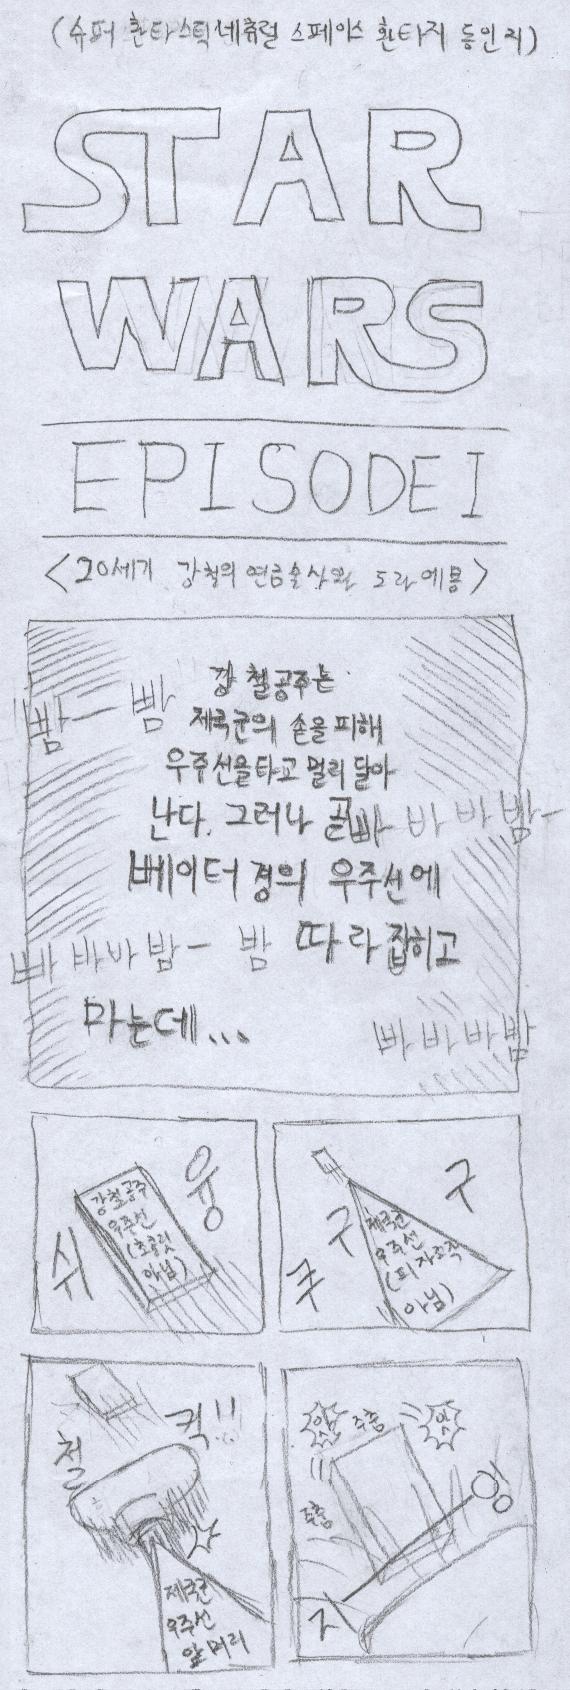 (슈퍼 환타스틱 네츄럴 스페이스 환타지 동인지)
STAR
WARS
EPISODE I
<20세기 강철의 연금술사와 도라에몽>
강철공주는
제국군의 손을 피해
우주선을 타고 멀리 달아
난다. 그러나 곧
빠바바밤-
빰- 빰
베이더 경의 우주선에
빠바바밤- 밤
따라잡히고
마는데...
빠바바밤
슈 융
강철공주
우주선
(초콜릿
아님)
쿠 구 구
제국군
우주선
(피자조각
아님)
철 컥!!
제국군
우주선
앞머리
주춤
주춤